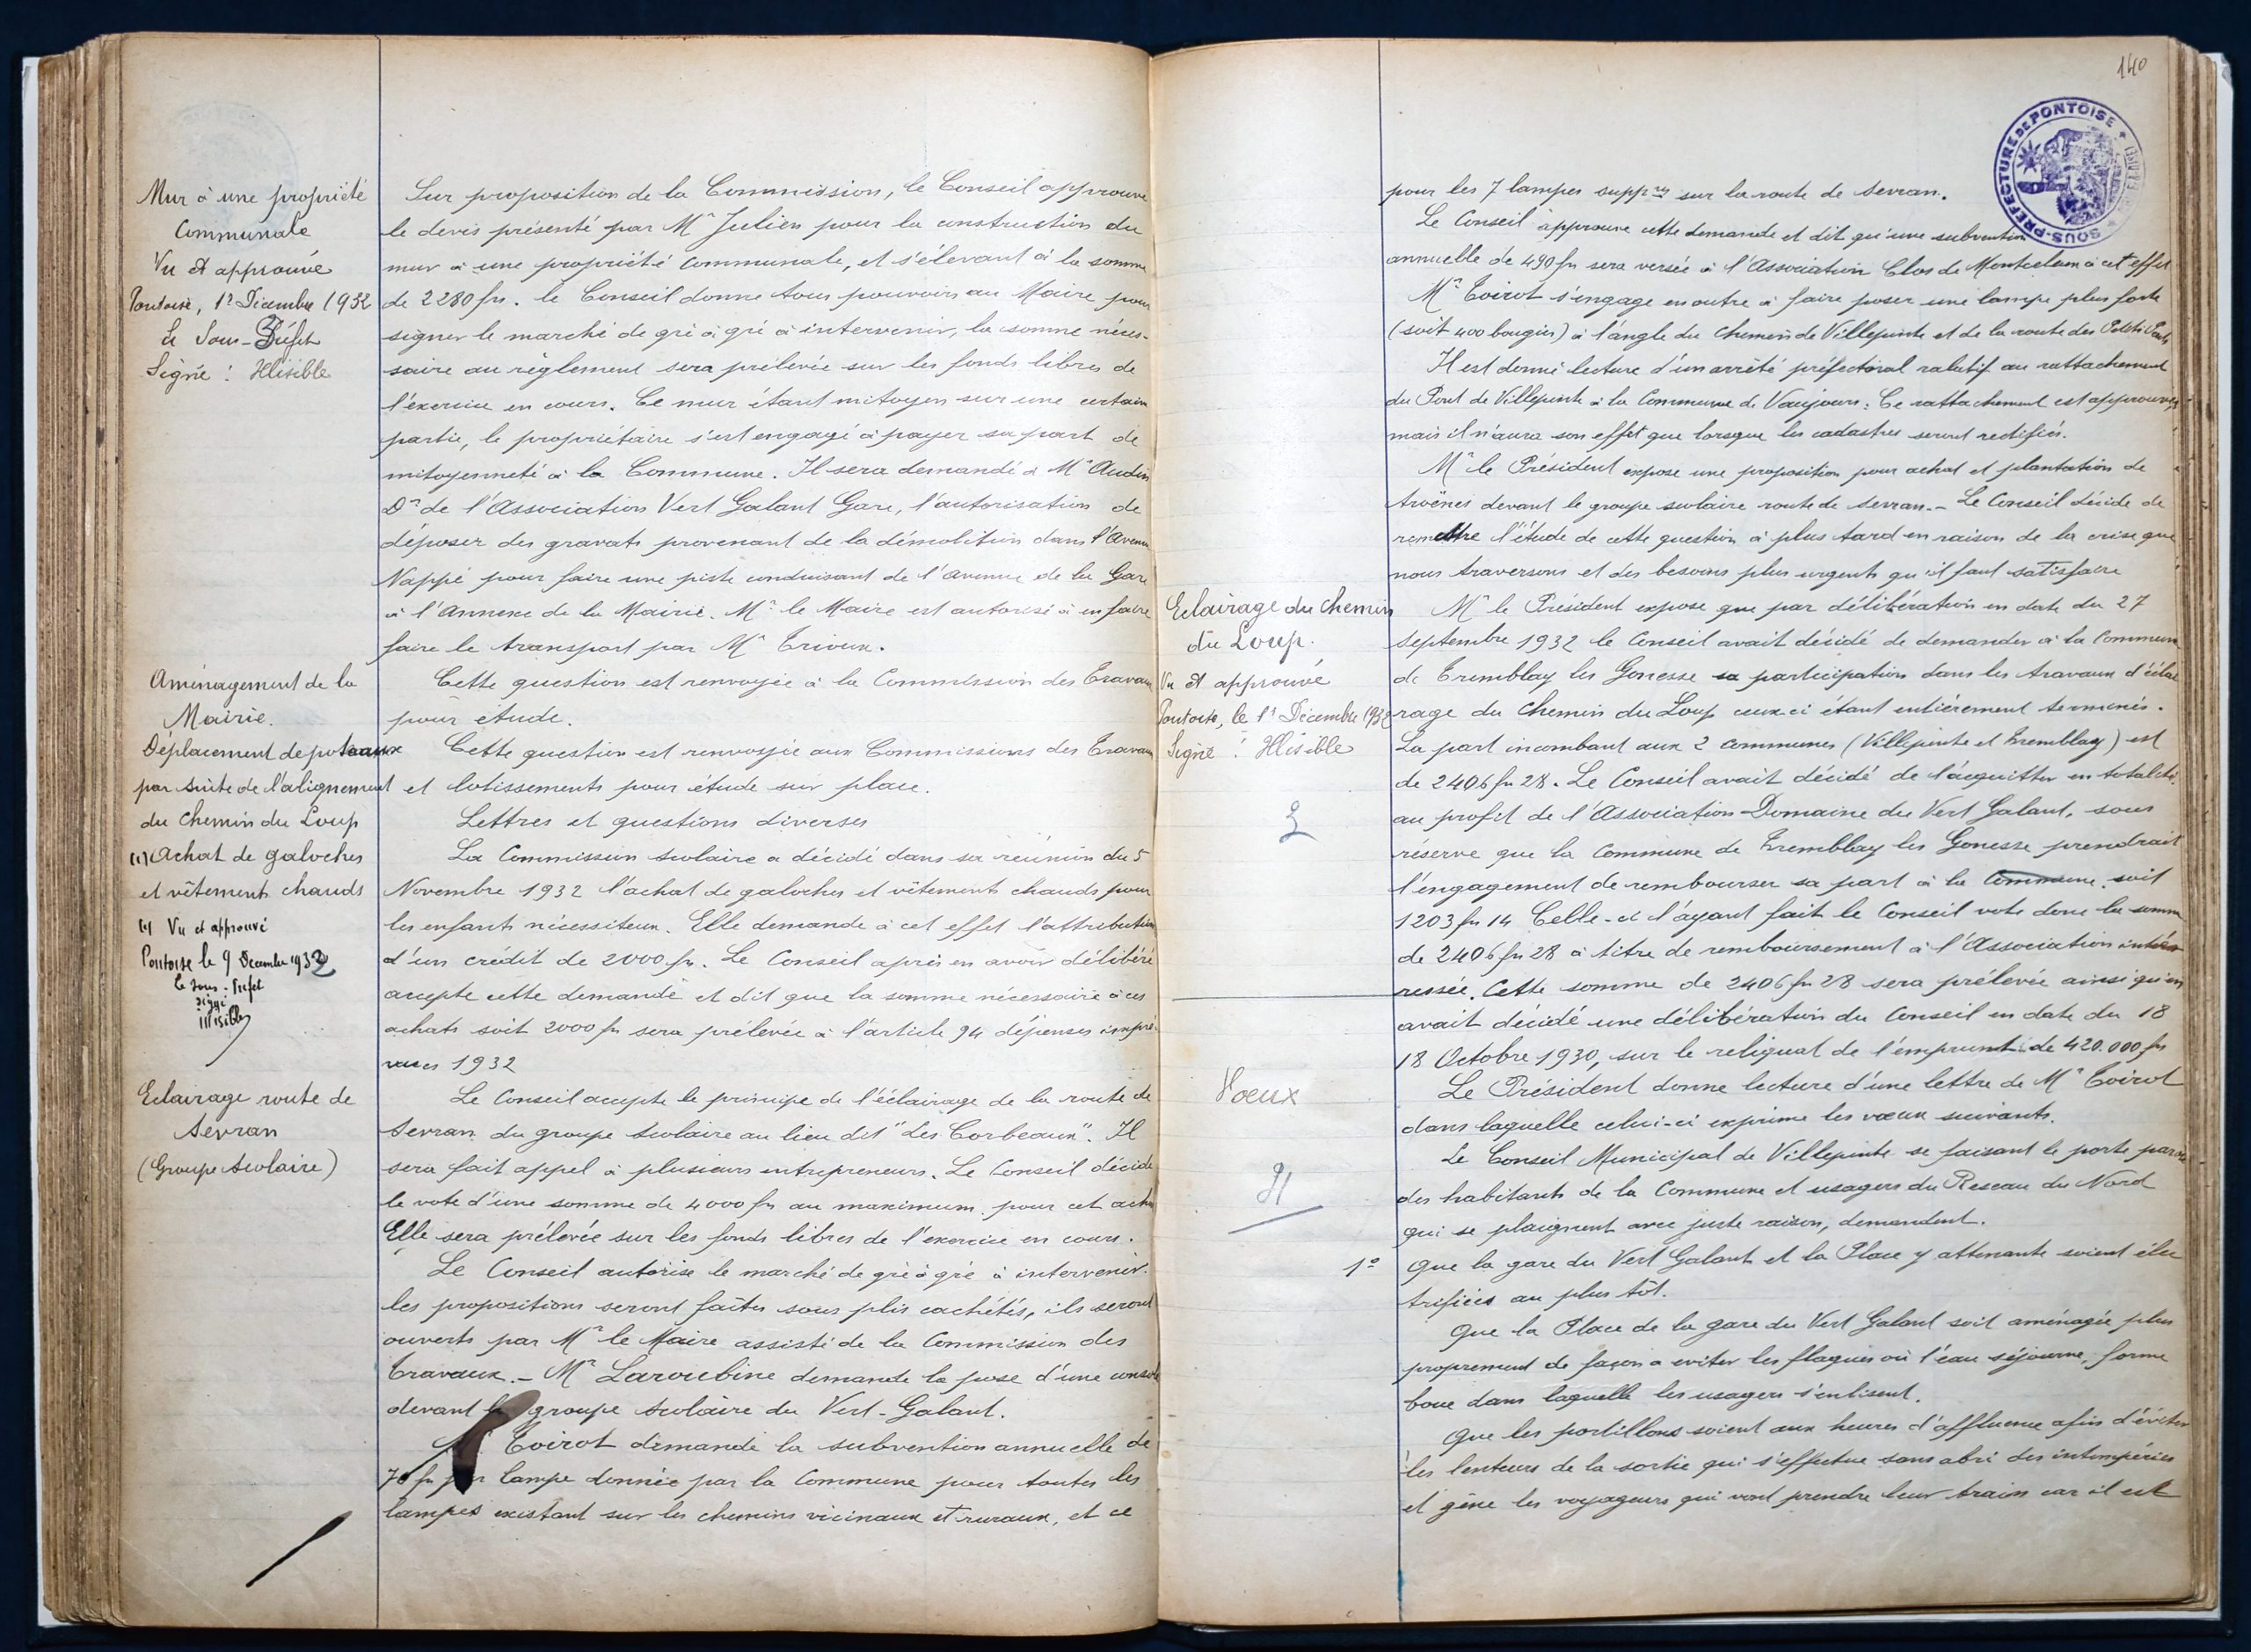 Mur à une propriété
Communale
Vu et approuvé
Pontoise, 1er Décembre 1932
Le Sous-Préfet
Signé : Illisible
Sur proposition de la Commission, le Conseil approuve
le devis présenté par Mr Julien pour la construction du
mur à une propriété communale, et s'élevant à la somme
de 2280 frs. le Conseil donne tous pouvoirs au Maire pour
signer le marché de gré à gré à intervenir, la somme néces-
saire au règlement sera prélevée sur les fonds libres de
l'exercice en cours. Ce mur étant mitoyen sur une certaine
partie, le propriétaire s'est engagé à payer sa part de
mitoyenneté à la Commune. Il sera demandé à Mr Audin
Dr de l'Association Vert Galant Gare, l'autorisation de
déposer des gravats provenant de la démolition dans l'Avenue
Nappé pour faire une piste conduisant de l'avenue de la Gare
à l'Annexe de la Mairie. Mr le Maire est autorisé à en faire
faire le transport par Mr Trioux.
Aménagement de la
Mairie.
Cette question est renvoyée à la Commission des Travaux
pour étude.
Déplacement de poteaux
par suite de l'alignement
du Chemin du Loup
Cette question est renvoyée aux Commissions des Travaux
et lotissements pour étude sur place.
Lettres et questions diverses
(1) Achat de galoches
et vêtements chauds
(1) Vu et approuvé
Pontoise le 9 Décembre 1932
le Sous-Préfet
signé
illisible
La Commission Scolaire a décidé dans sa réunion du 5
Novembre 1932 l'achat de galoches et vêtements chauds pour
les enfants nécessiteux. Elle demande à cet effet l'attribution
d'un crédit de 2000 frs. Le Conseil après en avoir délibéré
accepte cette demande et dit que la somme nécessaire à ces
achats soit 2000 frs sera prélevée à l'article 94 dépenses impré-
vues 1932
Eclairage route de
Sevran
(Groupe Scolaire)
Le Conseil accepte le principe de l'éclairage de la route de
Sevran du groupe Scolaire au lieu dit "Les Corbeaux". Il
sera fait appel à plusieurs entrepreneurs. Le Conseil décide
le vote d'une somme de 4000 frs au maximum pour cet achat
Elle sera prélevée sur les fonds libres de l'exercice en cours.
Le Conseil autorise le marché de gré à gré à intervenir.
les propositions seront faites sous plis cachetés, ils seront
ouverts par Mr le Maire assisté de la Commission des
Travaux. - Mr Laroubine demande la pose d'une console
devant le groupe Scolaire du Vert-Galant.
Mr Toirot demande la subvention annuelle de
70 frs par lampe donnée par la Commune pour toutes les
lampes existant sur les chemins vicinaux et ruraux, et ce
140
SOUS-PRÉFECTURE DE PONTOISE
pour les 7 lampes suppres sur la route de Sevran.
Le Conseil approuve cette demande et dit qu'une subvention
annuelle de 490 frs sera versée à l'Association Clos de Montceleux à cet effet
Mr Toirot s'engage en outre à faire poser une lampe plus forte
(soit 400 bougies) à l'angle du Chemin de Villepinte et de la route des Petits Ponts
Il est donné lecture d'un arrêté préfectoral relatif au rattachement
du Pont de Villepinte à la Commune de Vaujours. Ce rattachement est approuvé,
mais il n'aura son effet que lorsque les cadastres seront rectifiés.
Mr le Président expose une proposition pour achat et plantation de
troënes devant le groupe scolaire route de Sevran. - Le Conseil décide de
remettre l'étude de cette question à plus tard en raison de la crise que
nous traversons et des besoins plus urgents qu'il faut satisfaire
Eclairage du Chemin
du Loup.
Vu et approuvé
Pontoise, le 1er Décembre 1932
Signé : Illisible
Mr le Président expose que par délibération en date du 27
Septembre 1932 le Conseil avait décidé de demander à la Commune
de Tremblay les Gonesse sa participation dans les travaux d'éclai
rage du Chemin du Loup ceux-ci étant entièrement terminés.
La part incombant aux 2 communes (Villepinte et Tremblay) est
de 2406 frs 28. Le Conseil avait décidé de l'acquitter en totalité
au profit de l'Association Domaine du Vert Galant, sous
réserve que la Commune de Tremblay les Gonesse prendrait
l'engagement de rembourser sa part à la Commune, soit
1203 frs 14 Celle-ci l'ayant fait le Conseil vote donc la somme
de 2406 frs 28 à titre de remboursement à l'Association inté
ressée. Cette somme de 2406 frs 28 sera prélevée ainsi qu'en
avait décidé une délibération du Conseil en date du 18
18 Octobre 1930, sur le reliquat de l'emprunt de 420.000 frs
Voeux
Le Président donne lecture d'une lettre de Mr Toirot
dans laquelle celui-ci exprime les voeux suivants.
Le Conseil Municipal de Villepinte se faisant le porte parole
des habitants de la Commune et usagers du Reseau du Nord
qui se plaignent avec juste raison, demandent.
1º Que la gare du Vert Galant et la Place y attenante soient élec
trifiées au plus tôt.
Que la Place de la gare du Vert Galant soit aménagée plus
proprement de façon a eviter les flaques où l'eau séjourne, forme
boue dans laquelle les usagers s'enlisent.
Que les portillons soient aux heures d'affluence afin d'éviter
les lenteurs de la sortie qui s'effectue sans abri des intempéries
et gêne les voyageurs qui vont prendre leur train car il est